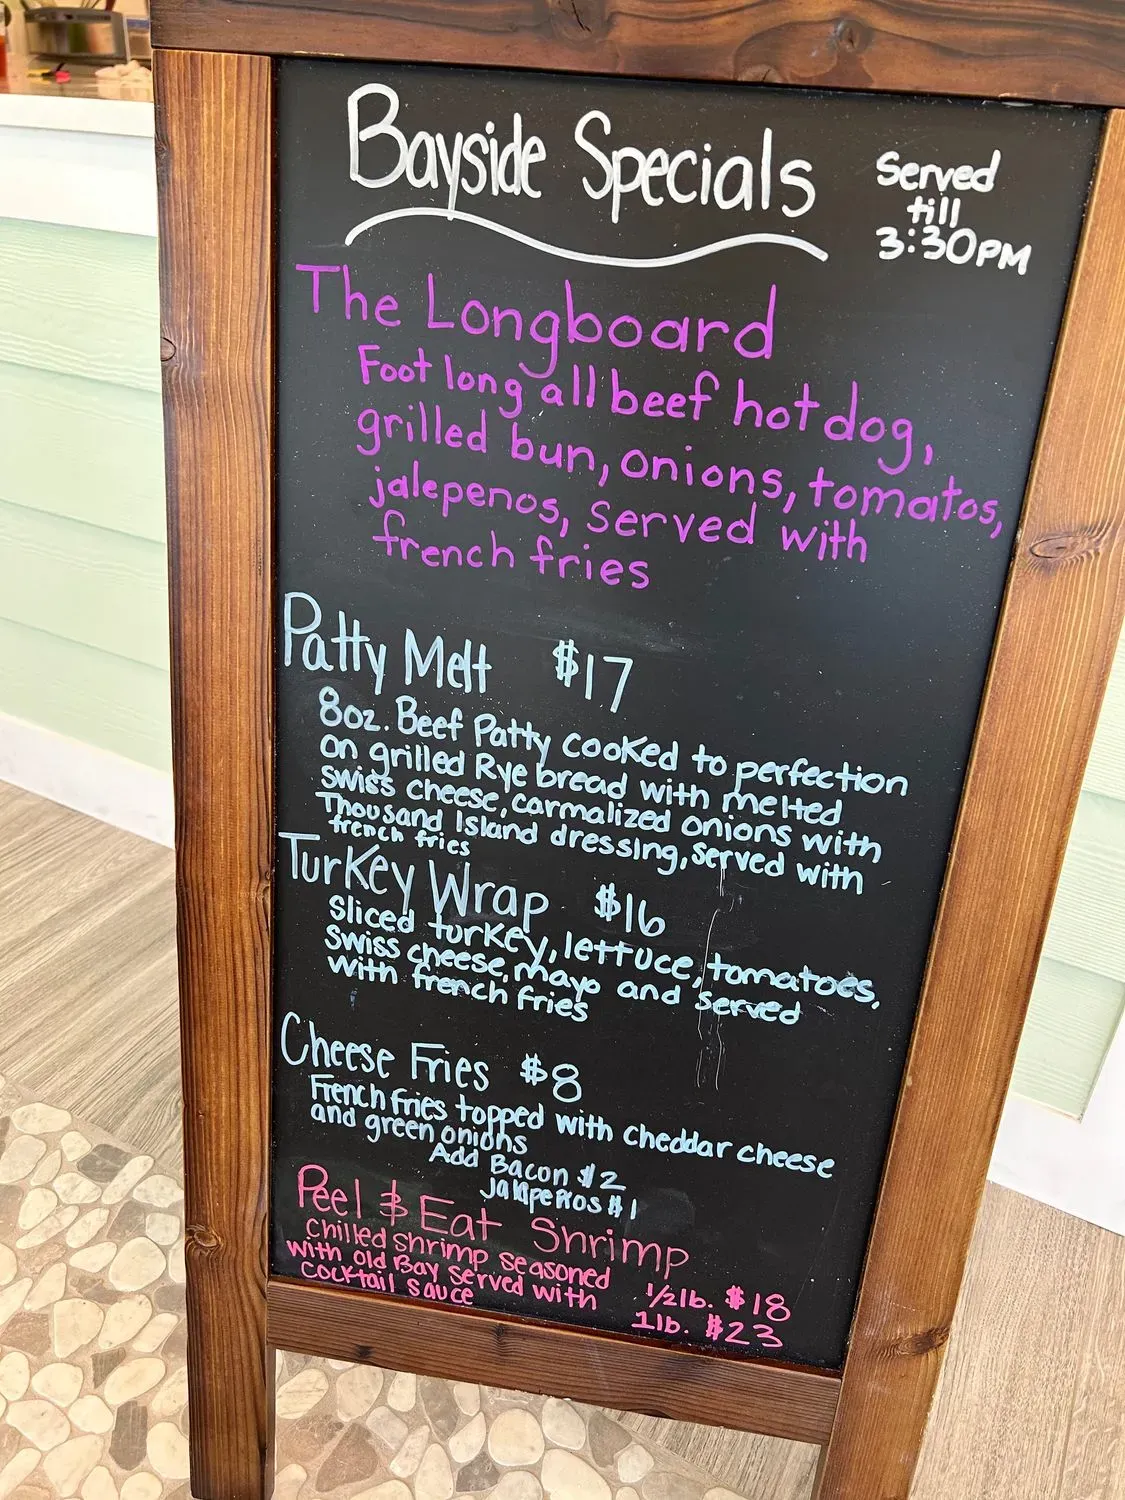 Bayside Specials
Served
till
3:30PM
The Longboard
Foot long all beef hot dog,
grilled bun, onions, tomatos,
jalepenos, served with
french fries
Patty Melt $17
8oz. Beef Patty cooked to perfection
on grilled Rye bread with melted
swiss cheese, carmalized onions with
Thousand Island dressing, served with
french fries
Turkey Wrap $16
Sliced turkey, lettuce, tomatoes,
Swiss cheese, mayo and served
with french fries
Cheese Fries $8
French fries topped with cheddar cheese
and green onions
Add Bacon $2
Jalapeños $1
Peel & Eat Shrimp
Chilled shrimp seasoned
with old Bay served with
cocktail sauce
1/2lb. $18
1lb. $23